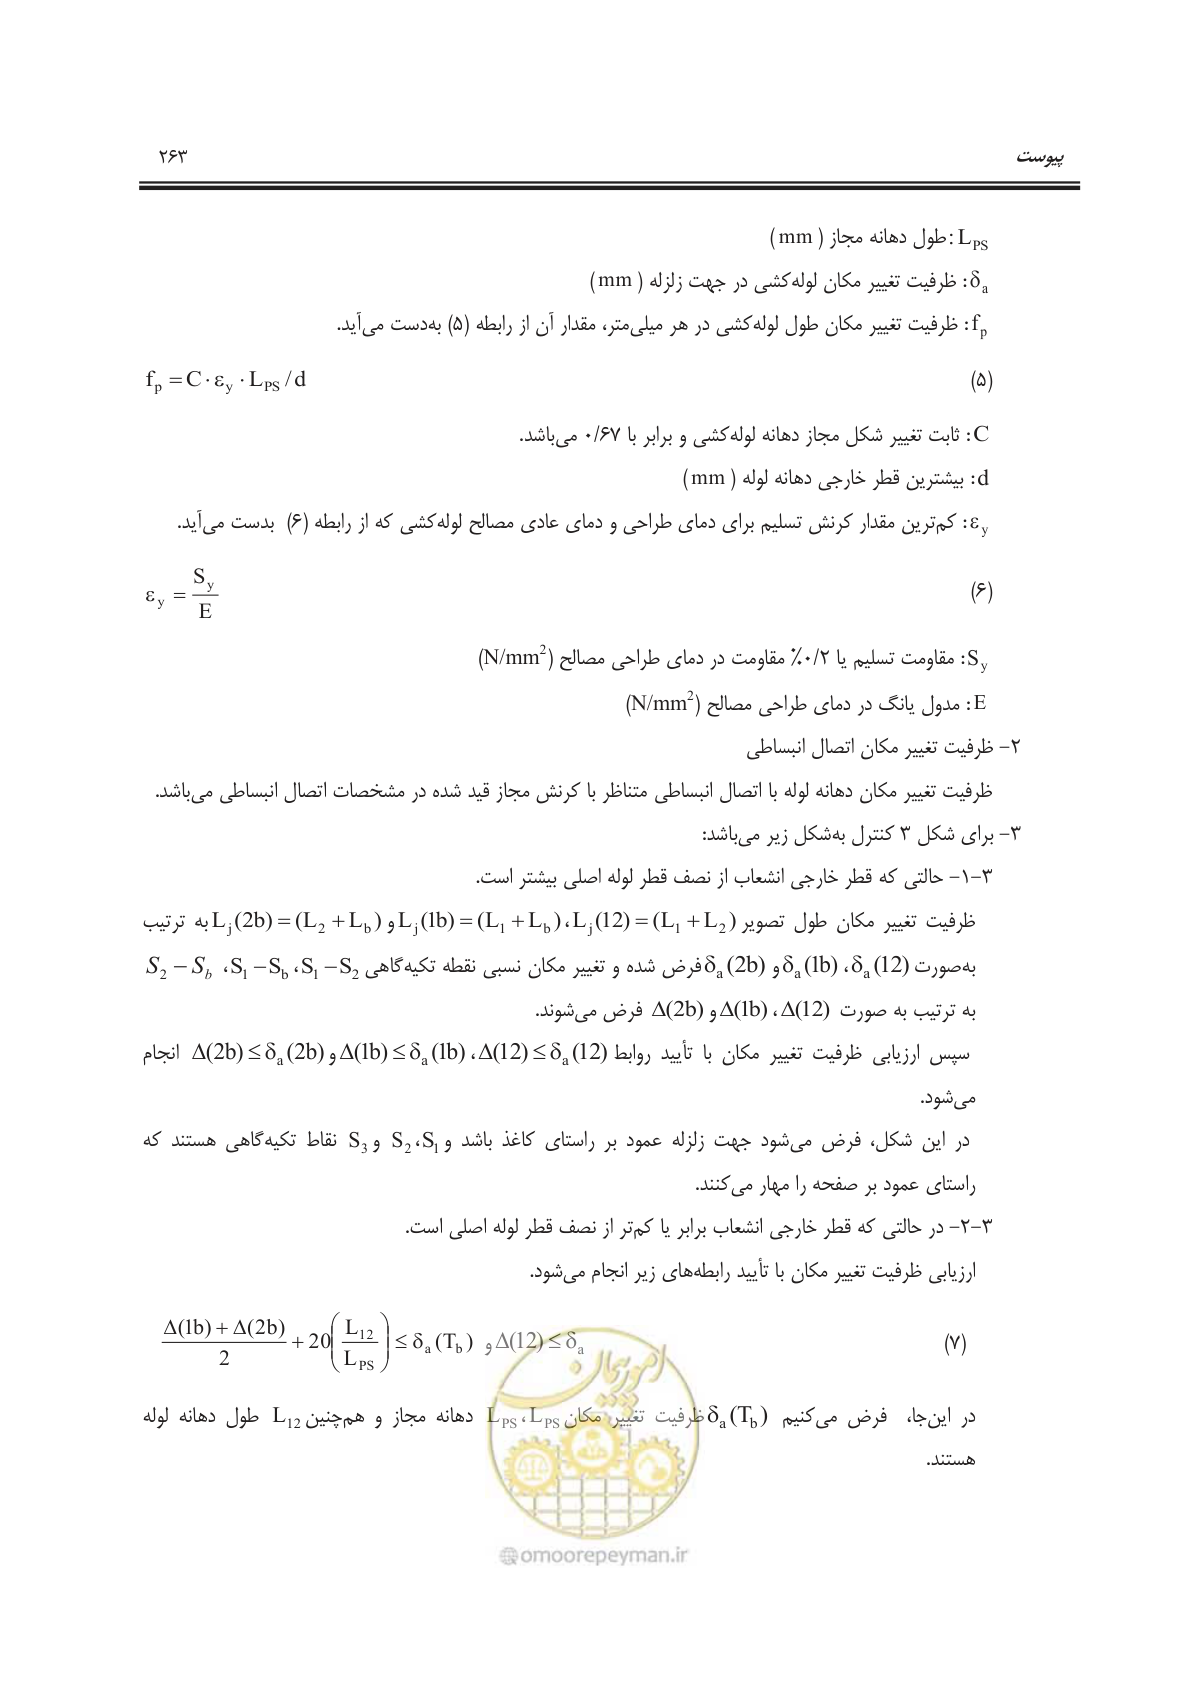 پیوست ۲۶۳
L_PS: طول دهانه مجاز (mm)
δ_a: ظرفیت تغییر مکان لوله‌کشی در جهت زلزله (mm)
f_p: ظرفیت تغییر مکان طول لوله‌کشی در هر میلی‌متر، مقدار آن از رابطه (۵) به‌دست می‌آید.
f_p = C · ε_y · L_PS / d (۵)
C: ثابت تغییر شکل مجاز دهانه لوله‌کشی و برابر با ۰/۶۷ می‌باشد.
d: بیشترین قطر خارجی دهانه لوله (mm)
ε_y: کم‌ترین مقدار کرنش تسلیم برای دمای طراحی و دمای عادی مصالح لوله‌کشی که از رابطه (۶) بدست می‌آید.
ε_y = S_y / E (۶)
S_y: مقاومت تسلیم یا ۰/۲٪ مقاومت در دمای طراحی مصالح (N/mm²)
E: مدول یانگ در دمای طراحی مصالح (N/mm²)
۲- ظرفیت تغییر مکان اتصال انبساطی
ظرفیت تغییر مکان دهانه لوله با اتصال انبساطی متناظر با کرنش مجاز قید شده در مشخصات اتصال انبساطی می‌باشد.
۳- برای شکل ۳ کنترل به‌شکل زیر می‌باشد:
۳-۱- حالتی که قطر خارجی انشعاب از نصف قطر لوله اصلی بیشتر است.
ظرفیت تغییر مکان طول تصویر L_j(12) = (L_1 + L_2)، L_j(1b) = (L_1 + L_b) و L_j(2b) = (L_2 + L_b) به ترتیب
به‌صورت δ_a(12)، δ_a(1b) و δ_a(2b) فرض شده و تغییر مکان نسبی نقطه تکیه‌گاهی S_1 − S_2، S_1 − S_b، S_2 − S_b
به ترتیب به صورت Δ(12)، Δ(1b) و Δ(2b) فرض می‌شوند.
سپس ارزیابی ظرفیت تغییر مکان با تأیید روابط Δ(12) ≤ δ_a(12)، Δ(1b) ≤ δ_a(1b) و Δ(2b) ≤ δ_a(2b) انجام
می‌شود.
در این شکل، فرض می‌شود جهت زلزله عمود بر راستای کاغذ باشد و S_1، S_2 و S_3 نقاط تکیه‌گاهی هستند که
راستای عمود بر صفحه را مهار می‌کنند.
۳-۲- در حالتی که قطر خارجی انشعاب برابر یا کم‌تر از نصف قطر لوله اصلی است.
ارزیابی ظرفیت تغییر مکان با تأیید رابطه‌های زیر انجام می‌شود.
(Δ(1b) + Δ(2b)) / 2 + 20(L_12 / L_PS) ≤ δ_a(T_b) و Δ(12) ≤ δ_a (۷)
در این‌جا، فرض می‌کنیم δ_a(T_b) ظرفیت تغییر مکان L_PS، L_PS دهانه مجاز و هم‌چنین L_12 طول دهانه لوله
هستند.
امور پیمان
@omoorepeyman.ir